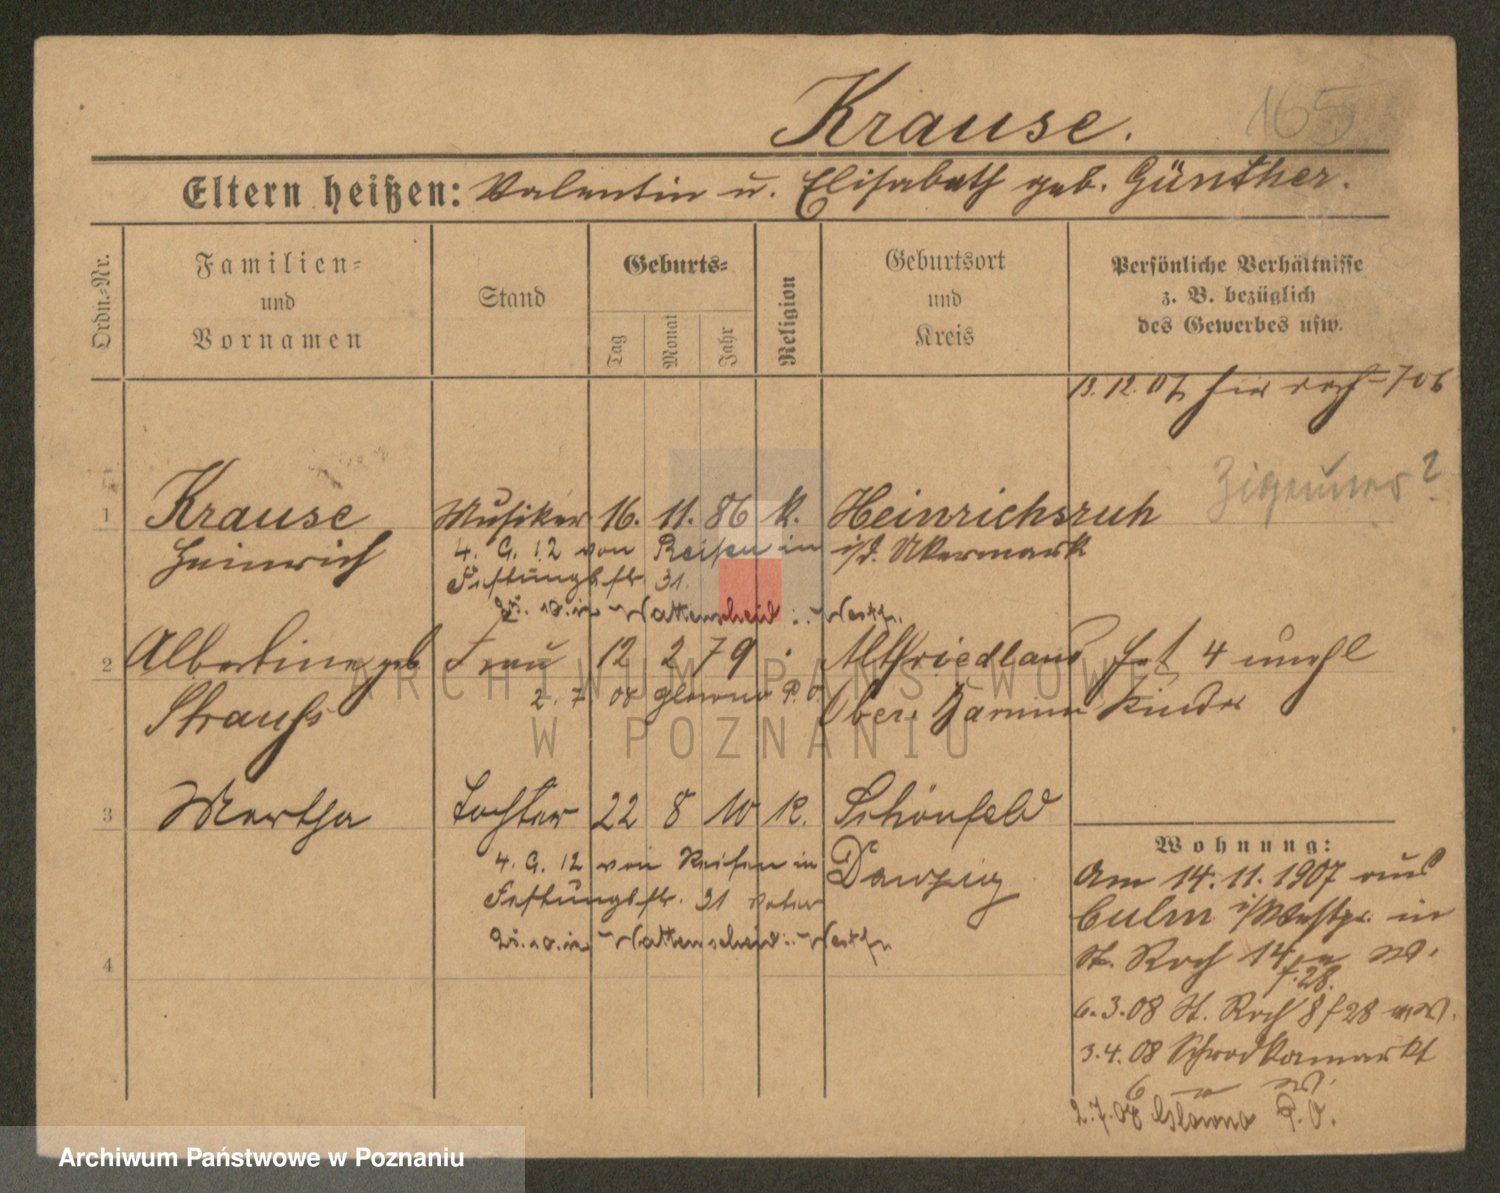 165
Krause.
Eltern heißen: Valentin u. Elisabeth geb. Günther.
Ordn.-Nr.
Familien- und Vornamen
Stand
Geburts-
Tag
Monat
Jahr
Religion
Geburtsort und Kreis
Persönliche Verhältnisse
z. B. bezüglich
des Gewerbes usw.
13. 12. 07 hier
Zigeuner?
1 Krause Musiker 16. 11. 86 k. Heinrichsruh
Heinrich 4. 9. 12 von Reisen in i/d. Ukermark
Festungsstr. 31.
25. 10. in Wattenscheid i. Westf.
2 Albertine geb Frau 12 2 79 Altfriedland hat 4 unehl
2. 7. 08 Glowno P. O. Ober Barnim Kinder
Strauhs
3 Martha Tochter 22 8 10 k. Schönfeld
4. 9. 12 von Reisen in Danzig
Festungsstr. 31 Vater
25. 10. in Wattenscheid i. Westf.
4
Wohnung:
Am 14. 11. 1907 aus
Culm i/Westpr. in
St. Roch 14 W.
f. 28.
6. 3. 08 St. Roch 8 f 28 W.
3. 4. 08 Schrodkamarkt
6 W.
2. 7. 08 Glowno P. O.
ARCHIWUM PAŃSTWOWE
W POZNANIU
Archiwum Państwowe w Poznaniu